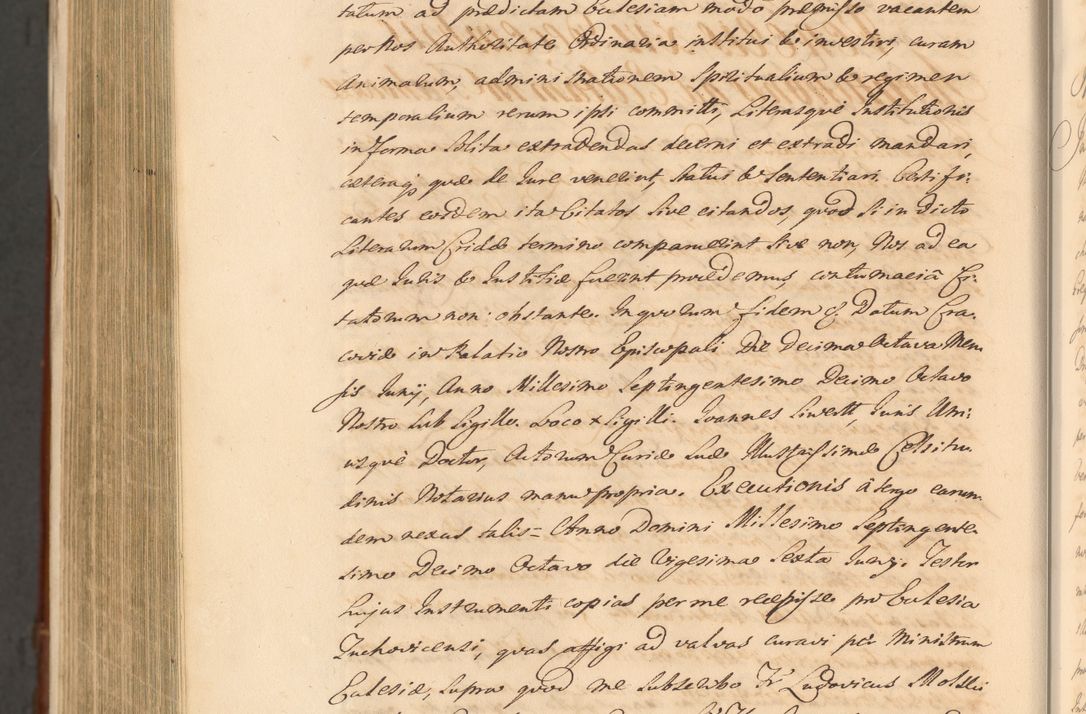 tatum ad prædictam Ecclesiam modo præmisso vacantem
per Nos Authoritate Ordinaria institui & investiri, curam
Animarum, administrationem Spiritualium & regimen
temporalium rerum ipsi committi, Literasquè Institutionis
in forma solita extradendas decerni et extradi mandari,
cæteraq, quæ de Jure venerint, statui & Sententiari. Certifi:
cantes eosdem ita Citatos sive citandos, quod si in dicto
Literarum Cridæ termino comparuerint sive non, Nos ad ea
quæ Juris & Justitiæ fuerint procedemus, contumaciâ Ci:
tatorum non obstante. In quorum fidem & Datum Cra:
coviæ in Palatio Nostro Episcopali Die Decima Octava Men
sis Junij, Anno Millesimo Septingentesimo Decimo Octavo
Nostro sub Sigillo. Loco x Sigilli. Joannes Siwestt, Juris Utri:
usquè Doctor, Actorum Curiæ Suæ Illustrissimæ Celsitu
dinis Notarius manu propria. Executionis à tergo earun
dem nexus talis = Anno Domini Millesimo Septingente
simo Decimo Octavo die Vigesima Sexta Junij. Testor
hujus Instrumenti copias per me recepisse pro Ecclesia
Tuchoviensi, quas affigi ad valvas curavi per Ministrum
Ecclesiæ, supra quod me subscribo Fr Ludovicus